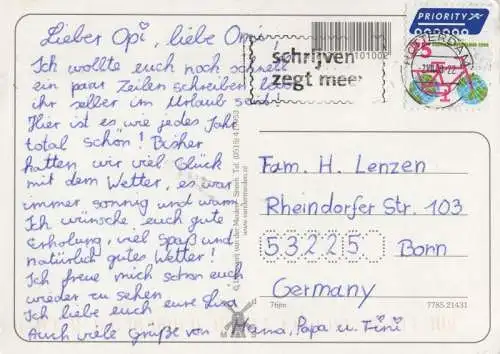 Lieber Opi, liebe Omi,
Ich wollte euch noch schnell
ein paar Zeilen schreiben bevor
ihr selber im Urlaub seid!
Hier ist es wie jedes Jahr
total schön! Bisher
hatten wir viel Glück
mit dem Wetter, es war
immer sonnig und warm.
Ich wünsche euch gute
Erholung, viel Spaß und
natürlich gutes Wetter!
Ich freue mich schon euch
wieder zu sehen
Ich liebe euch eure Lisa
Auch viele Grüße von Mama, Papa u. Fini
101002
schrijven
zegt meer
PRIORITY
Fam. H. Lenzen
Rheindorfer Str. 103
53225 Bonn
Germany
7ftjm
7785.21431